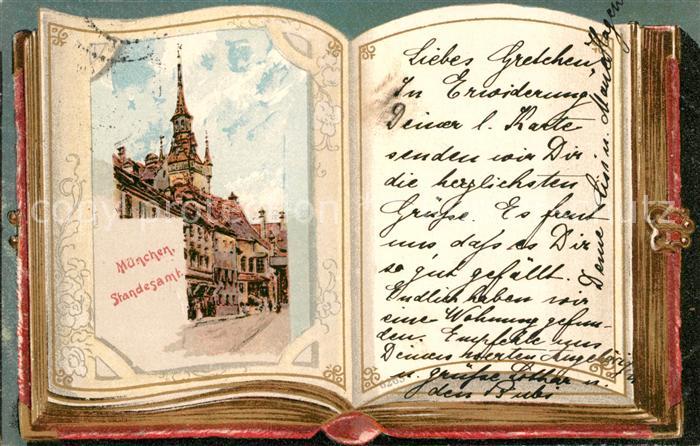 München.
Standesamt.
Liebes Gretchen
In Erwiderung
Deiner l. Karte
senden wir Dir
die herzlichsten
Grüße. Es freut
uns, daß es Dir
so gut gefällt.
Endlich haben wir
eine Wohnung gefun-
den. Empfehle uns
Deinen werten Angehörigen
u. grüße Lothar u.
den Bubi
Deine Lissi u. Maria Hagen